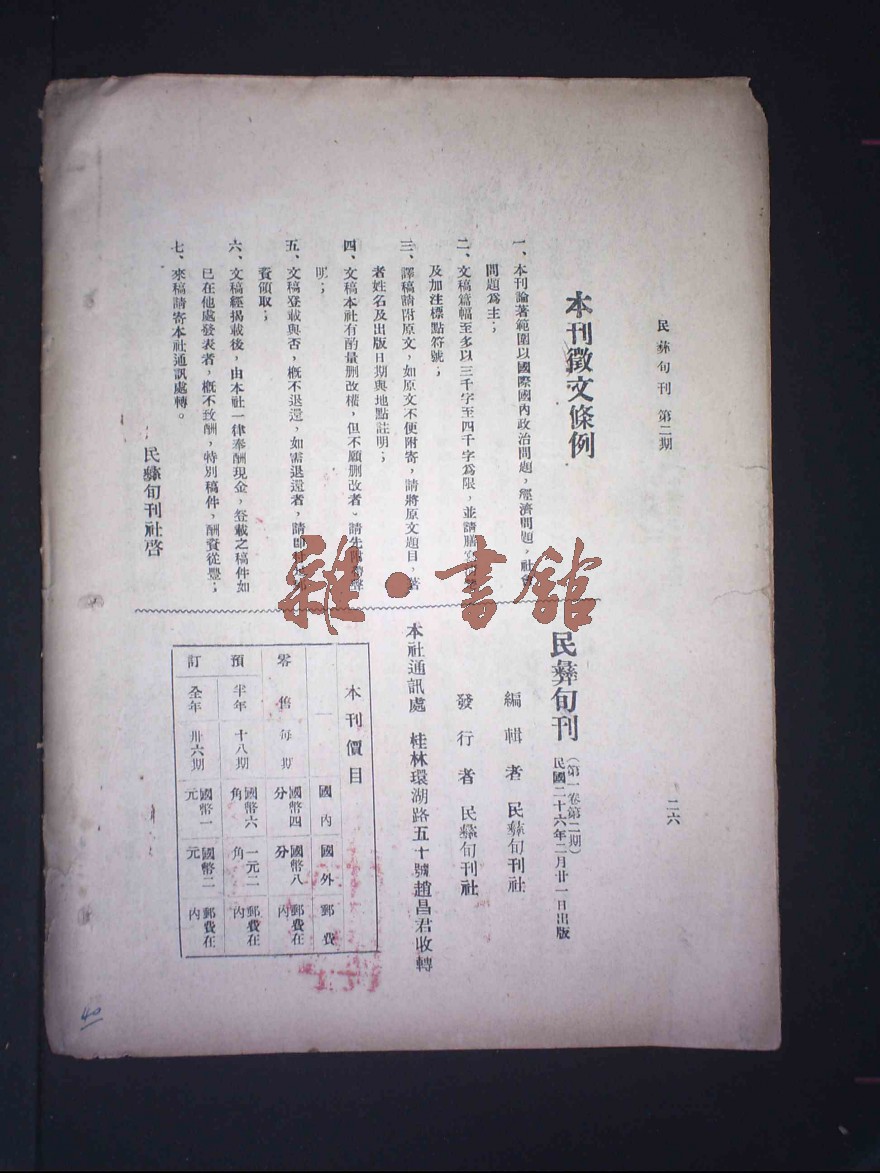 民彝旬刊　第二期
二六
本刊徵文條例
一、本刊論著範圍以國際國內政治問題，經濟問題，社會
問題為主；
二、文稿篇幅至多以三千字至四千字為限，並請謄寫
及加注標點符號；
三、譯稿請附原文，如原文不便附寄，請將原文題目，著
者姓名及出版日期與地點註明；
四、文稿本社有酌量刪改權，但不願刪改者，請先
明；
五、文稿登載與否，概不退還，如需退還者，請
費領取；
六、文稿經揭載後，由本社一律奉酬現金，登載之稿件如
已在他處發表者，概不致酬，特別稿件，酬資從豐；
七、來稿請寄本社通訊處轉。
民彝旬刊社啓
民彝旬刊（第一卷第二期）
民國二十六年二月廿一日出版
編輯者　民彝旬刊社
發行者　民彝旬刊社
本社通訊處　桂林環湖路五十號趙昌君收轉
本刊價目
國內　國外　郵費
零售　每期　國幣四分　國幣八分　郵費在內
預　半年　十八期　國幣六角　一元二角　郵費在內
訂　全年　卅六期　國幣一元　國幣二元　郵費在內
雜·書館
40